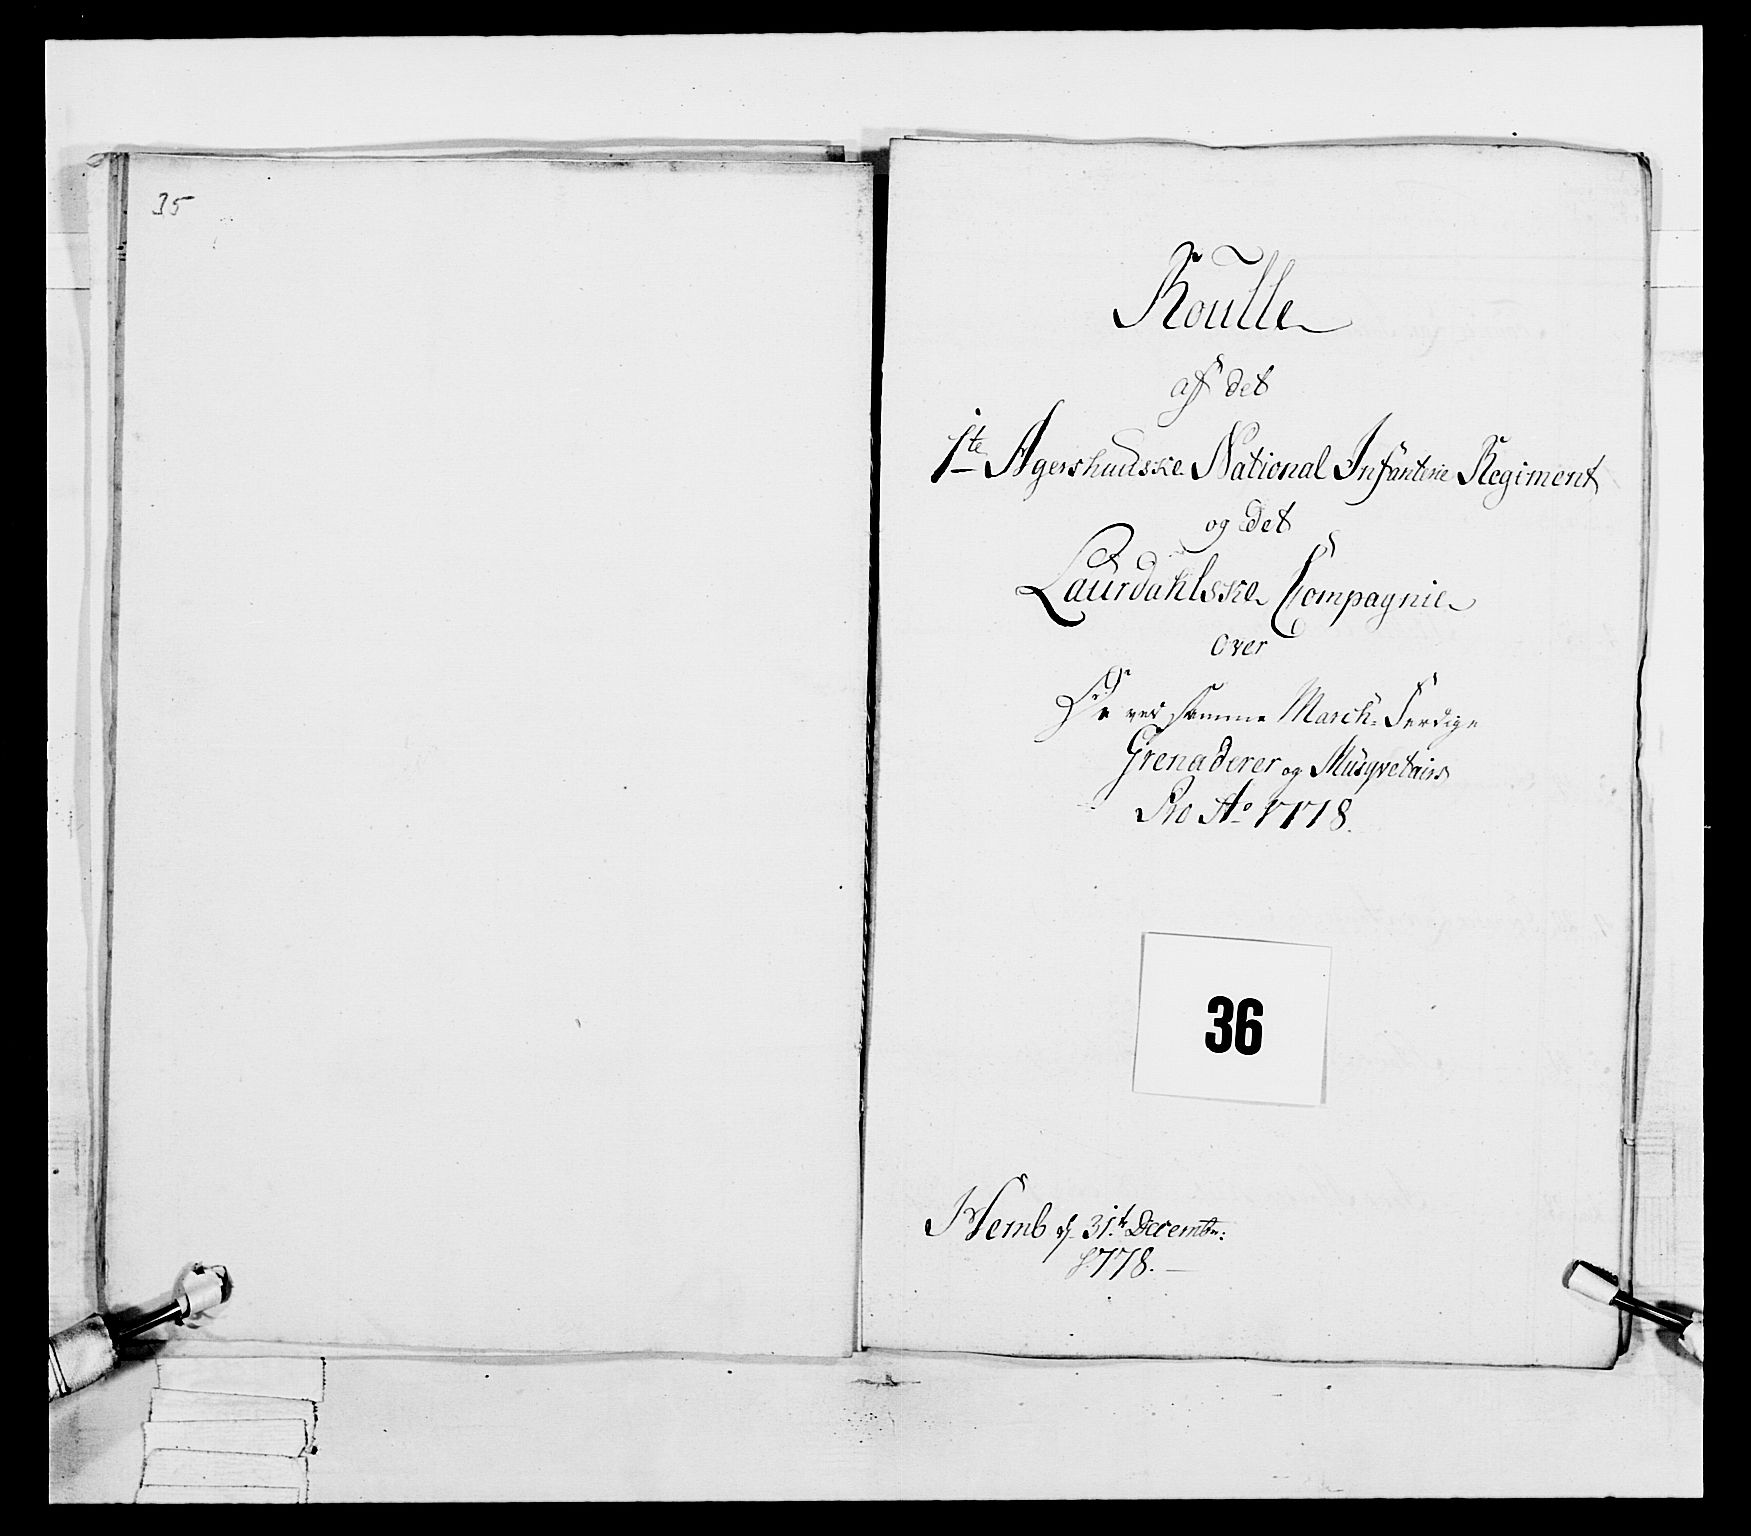 35
Roulle
af det
1ste Agershuuske National Infanterie Regiment
og det
Laurdahlske Compagnie
over
De ved samme March-Ferdige
Grenaderer og Musqvetairs
Pro Ao 1778.
36
Hemb d. 31te Decembr:
1778.